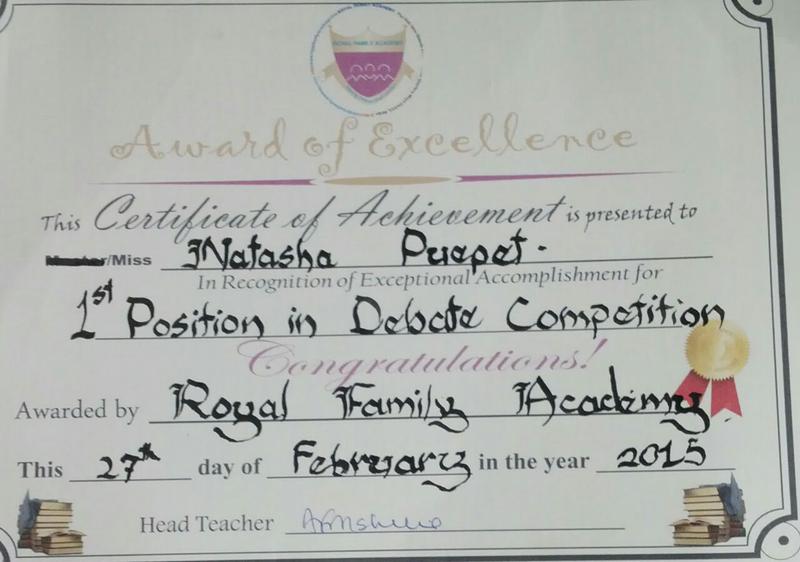 ROYAL FAMILY ACADEMY
Award of Excellence
This Certificate of Achievement is presented to
/Miss Natasha Puepet.
In Recognition of Exceptional Accomplishment for
1st Position in Debate Competition
Congratulations!
Awarded by Royal Family Academy.
This 27th day of February in the year 2015
Head Teacher